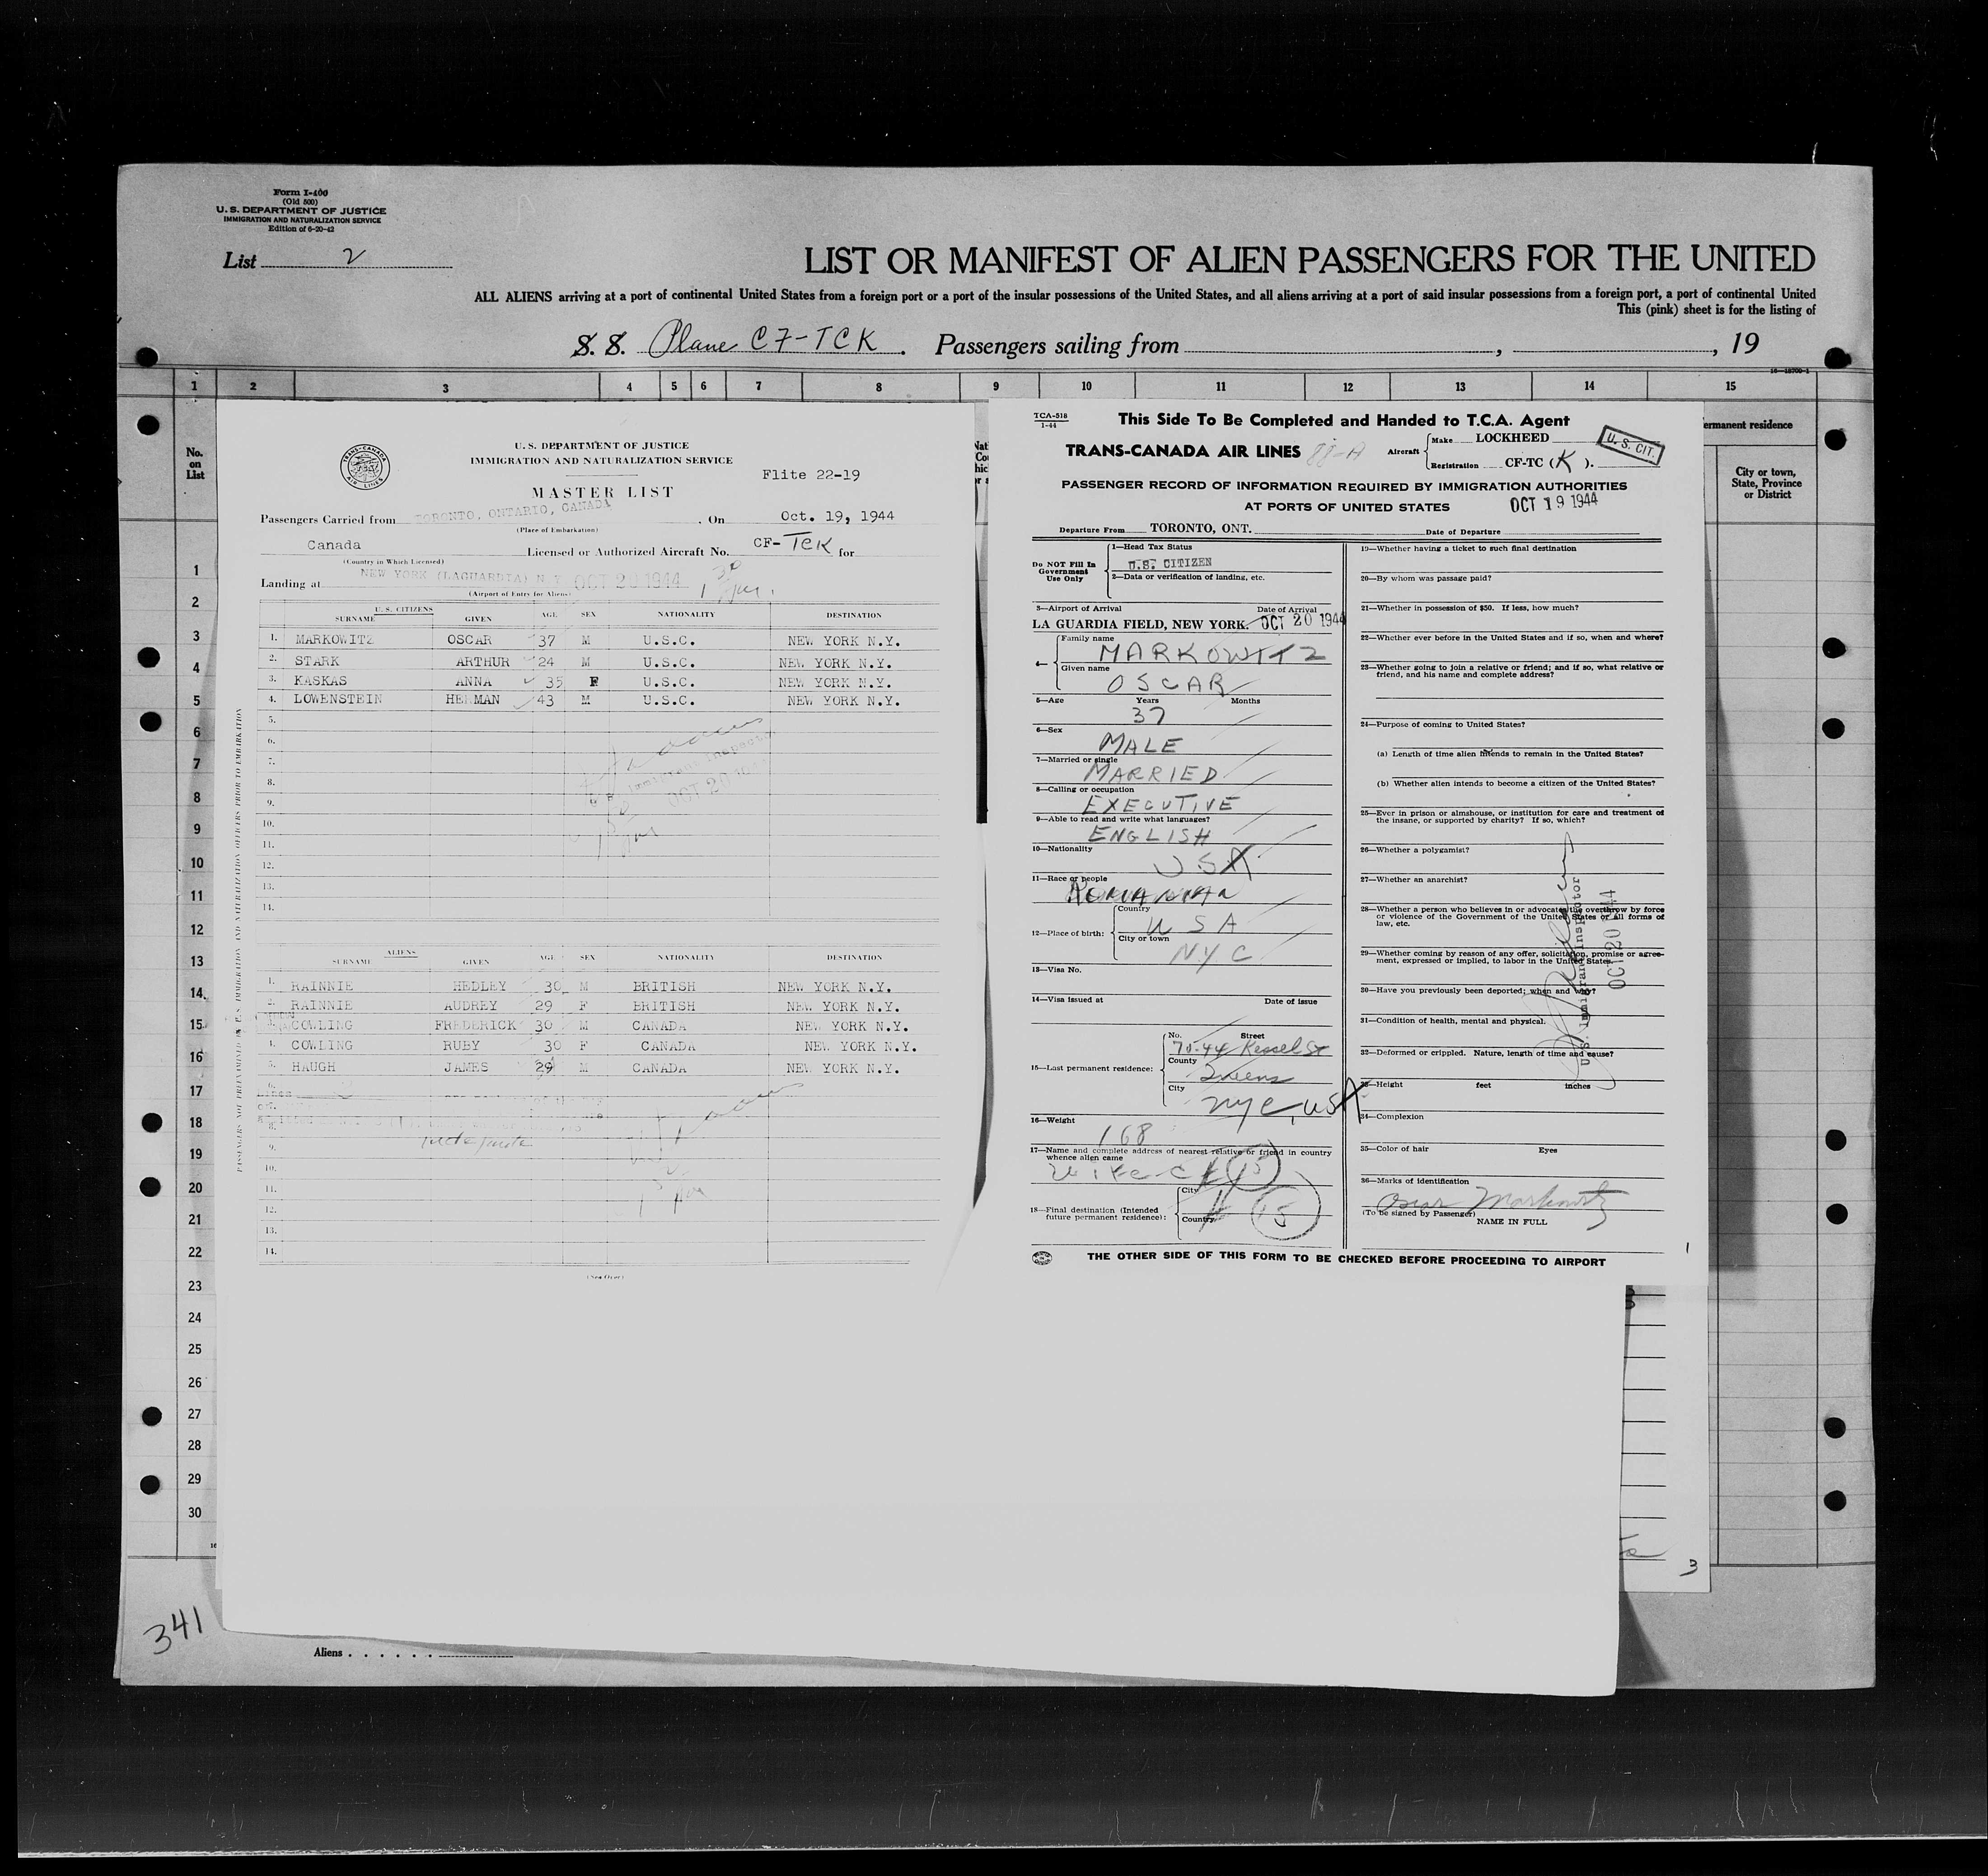 Form I-400
(Old 500)
U. S. DEPARTMENT OF JUSTICE
IMMIGRATION AND NATURALIZATION SERVICE
Edition of 6-20-42
List 2
LIST OR MANIFEST OF ALIEN PASSENGERS FOR THE UNITED
ALL ALIENS arriving at a port of continental United States from a foreign port or a port of the insular possessions of the United States, and all aliens arriving at a port of said insular possessions from a foreign port, a port of continental United
This (pink) sheet is for the listing of
S. S. Plane CF-TCK. Passengers sailing from , , 19
1 2 3 4 5 6 7 8 9 10 11 12 13 14 15
No.
on
List
ermanent residence
City or town,
State, Province
or District
1
2
3
4
5
6
7
8
9
10
11
12
13
14
15
16
17
18
19
20
21
22
23
24
25
26
27
28
29
30
341
Aliens . . . . . .
3
TRANS-CANADA
AIR LINES
U. S. DEPARTMENT OF JUSTICE
IMMIGRATION AND NATURALIZATION SERVICE
Flite 22-19
MASTER LIST
Passengers Carried from TORONTO, ONTARIO, CANADA . On Oct. 19, 1944
(Place of Embarkation)
Canada Licensed or Authorized Aircraft No. CF-TCK for
(Country in Which Licensed)
Landing at NEW YORK (LAGUARDIA) N.Y. OCT 20 1944
(Airport of Entry for Aliens)
U. S. CITIZENS
SURNAME GIVEN AGE SEX NATIONALITY DESTINATION
1. MARKOWITZ OSCAR 37 M U.S.C. NEW YORK N.Y.
2. STARK ARTHUR 24 M U.S.C. NEW YORK N.Y.
3. KASKAS ANNA 35 F U.S.C. NEW YORK N.Y.
4. LOWENSTEIN HERMAN 43 M U.S.C. NEW YORK N.Y.
5.
6.
7.
8.
9.
10.
11.
12.
13.
14.
Immigrant Inspector
OCT 20
ALIENS
SURNAME GIVEN AGE SEX NATIONALITY DESTINATION
1. RAINNIE HEDLEY 30 M BRITISH NEW YORK N.Y.
2. RAINNIE AUDREY 29 F BRITISH NEW YORK N.Y.
3. COWLING FREDERICK 30 M CANADA NEW YORK N.Y.
4. COWLING RUBY 30 F CANADA NEW YORK N.Y.
5. HAUGH JAMES 29 M CANADA NEW YORK N.Y.
6.
8.
9.
10.
11.
12.
13.
14.
(See Over)
TCA-518
1-44
This Side To Be Completed and Handed to T.C.A. Agent
TRANS-CANADA AIR LINES
Aircraft Make LOCKHEED
Registration CF-TC (K).
U. S. CIT.
PASSENGER RECORD OF INFORMATION REQUIRED BY IMMIGRATION AUTHORITIES
AT PORTS OF UNITED STATES OCT 19 1944
Departure From TORONTO, ONT. Date of Departure
Do NOT Fill In
Government
Use Only
1—Head Tax Status
U.S. CITIZEN
2—Data or verification of landing, etc.
3—Airport of Arrival Date of Arrival
LA GUARDIA FIELD, NEW YORK. OCT 20 1944
4—
Family name
MARKOWITZ
Given name
OSCAR
5—Age Years Months
37
6—Sex
MALE
7—Married or single
MARRIED
8—Calling or occupation
EXECUTIVE
9—Able to read and write what languages?
ENGLISH
10—Nationality
USA
11—Race or people
12—Place of birth:
Country
USA
City or town
NYC
13—Visa No.
14—Visa issued at Date of issue
15—Last permanent residence:
No. Street
70-44 Kessel St
County
Queens
City
NYC, USA
16—Weight
168
17—Name and complete address of nearest relative or friend in country
whence alien came
Wife
15
18—Final destination (Intended
future permanent residence):
City
Country
15
19—Whether having a ticket to such final destination
20—By whom was passage paid?
21—Whether in possession of $50. If less, how much?
22—Whether ever before in the United States and if so, when and where?
23—Whether going to join a relative or friend; and if so, what relative or
friend, and his name and complete address?
24—Purpose of coming to United States?
(a) Length of time alien intends to remain in the United States?
(b) Whether alien intends to become a citizen of the United States?
25—Ever in prison or almshouse, or institution for care and treatment of
the insane, or supported by charity? If so, which?
26—Whether a polygamist?
27—Whether an anarchist?
28—Whether a person who believes in or advocates the overthrow by force
or violence of the Government of the United States or all forms of
law, etc.
29—Whether coming by reason of any offer, solicitation, promise or agree-
ment, expressed or implied, to labor in the United States.
30—Have you previously been deported; when and why?
31—Condition of health, mental and physical.
32—Deformed or crippled. Nature, length of time and cause?
33—Height feet inches
34—Complexion
35—Color of hair Eyes
36—Marks of identification
Oscar Markowitz
(To be signed by Passenger)
NAME IN FULL
U.S. Immigrant Inspector
OCT 20 1944
THE OTHER SIDE OF THIS FORM TO BE CHECKED BEFORE PROCEEDING TO AIRPORT
1